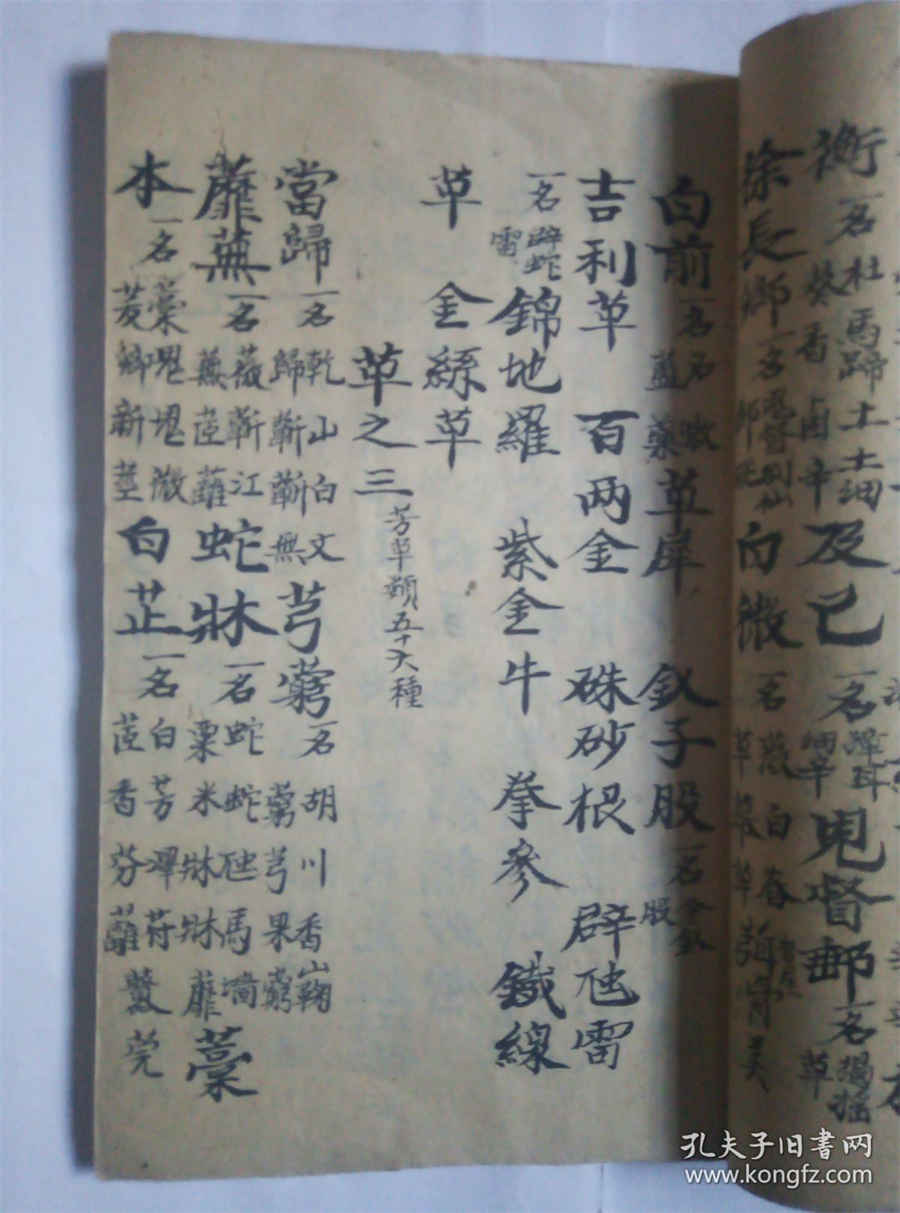 衡一名杜馬蹄土土細葵香及己一名獐耳細辛鬼督郵一名獨搖草
徐長卿一名鬼督郵別仙白薇一名薇白春草
白前一名石藍嗽藥草犀 釵子股一名金釵股
吉利草 百两金 硃砂根 辟虺雷
一名辟蛇雷錦地羅 紫金牛 拳參 鐵線
草 金絲草
草之三芳草類五十六種
當歸一名乾歸山蘄白蘄文無芎藭一名胡藭川芎香果山鞠藭
蘼蕪一名薇蕪蘄茝江蘺蛇牀一名蛇粟蛇米虺牀馬牀墻蘼藁
本一名藁茇塊卿堤新薇莖白芷一名白茝芳香澤芬苻蘺虈莞
孔夫子旧书网
www.kongfz.com